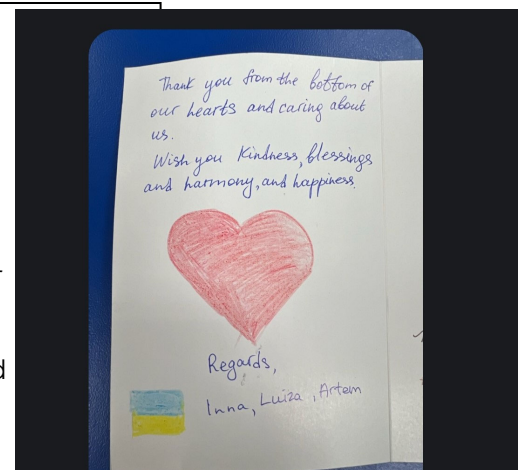 Thank you from the bottom of
our hearts and caring about
us.
Wish you Kindness, blessings
and harmony, and happiness.
Regards,
Inna, Luiza, Artem